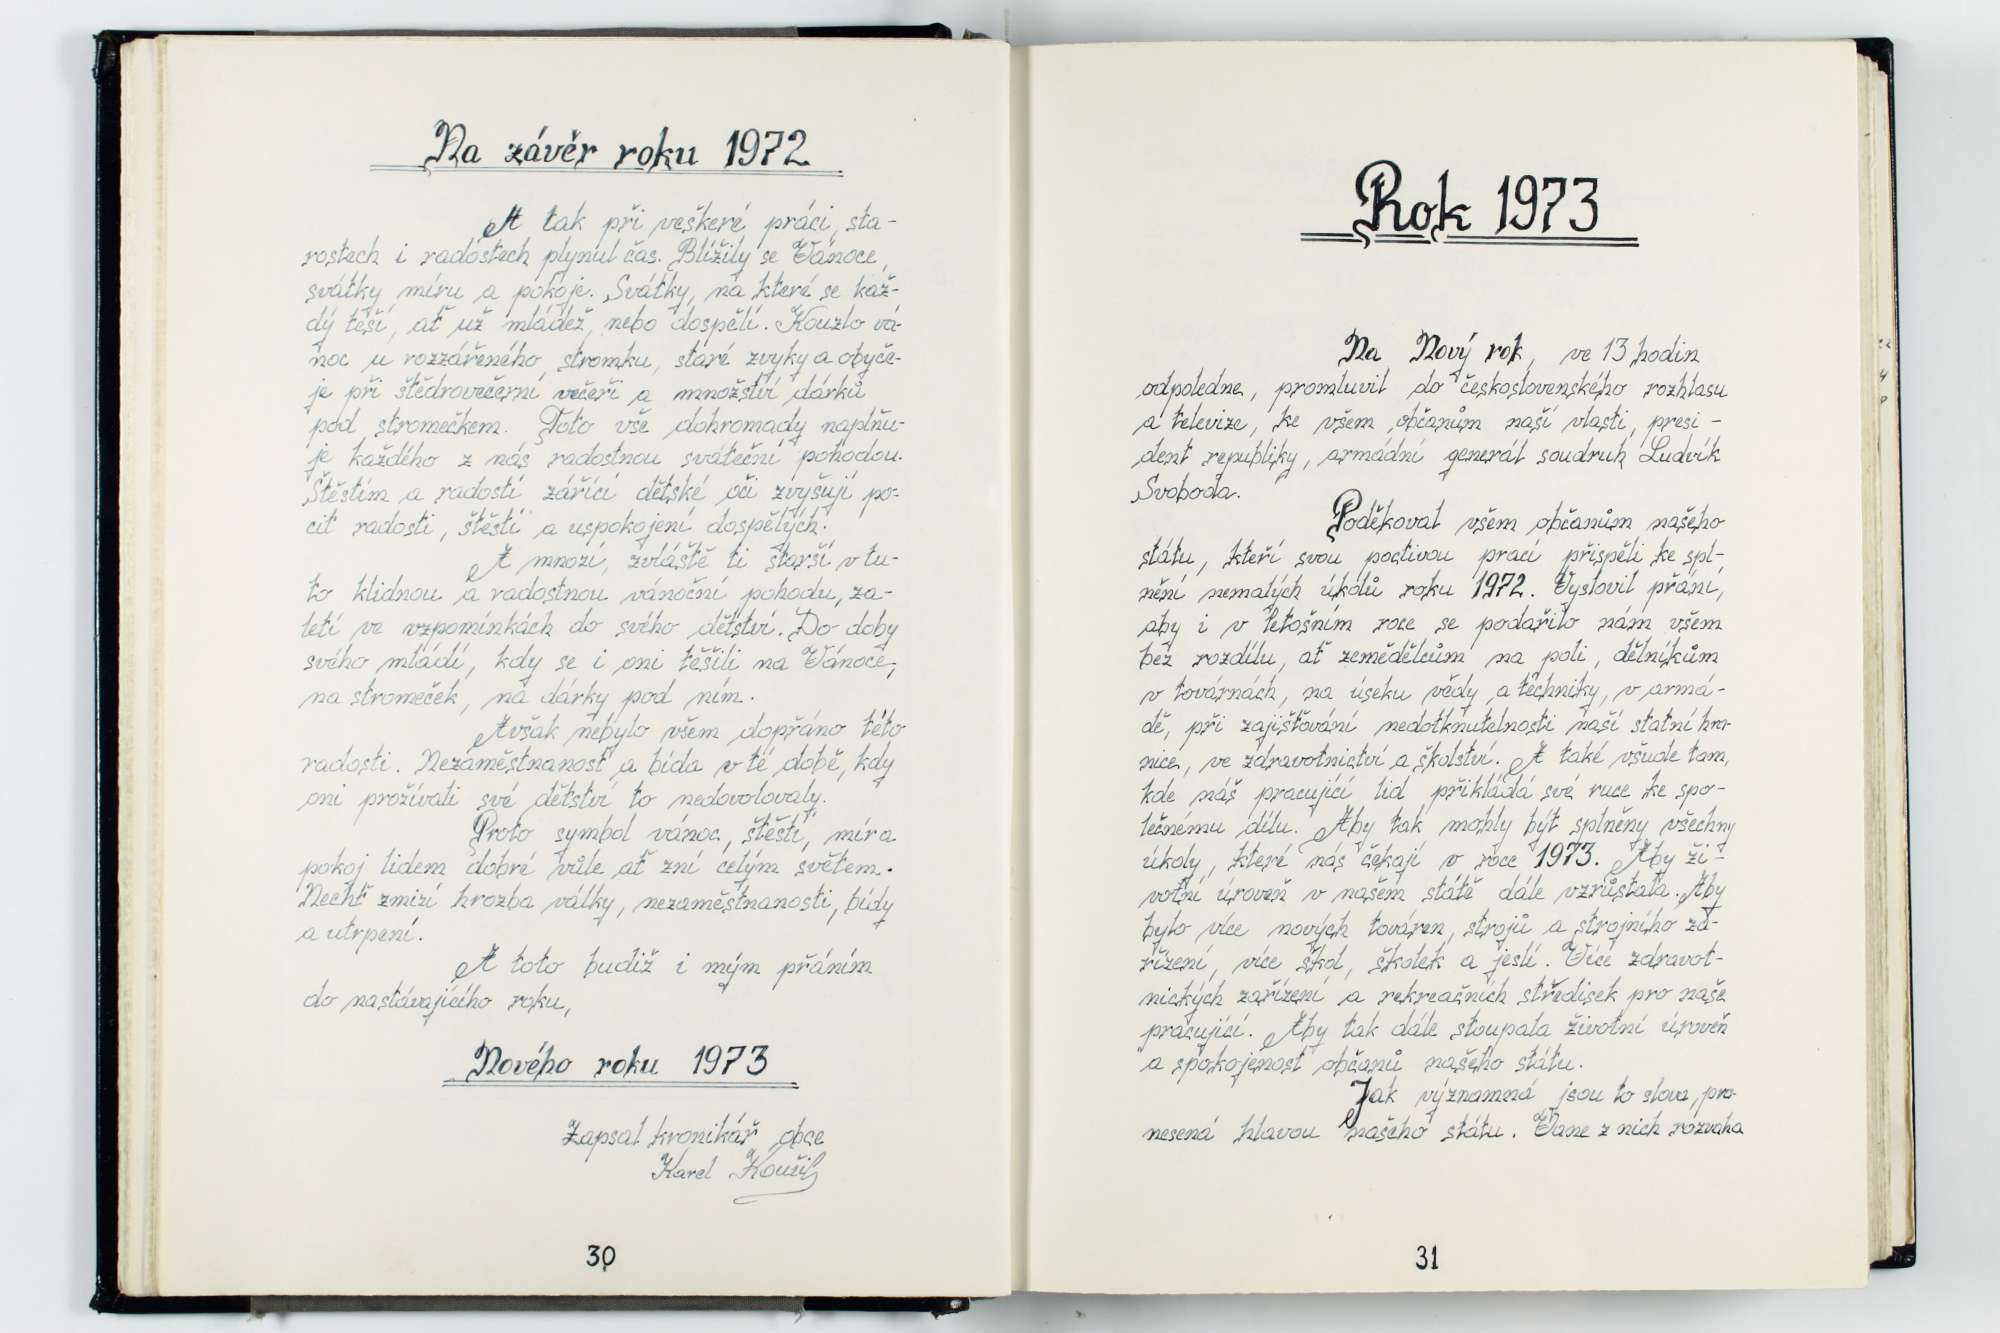 Na závěr roku 1972
A tak při veškeré práci, sta-
rostech i radostech plynul čas. Blížily se Vánoce,
svátky míru a pokoje. Svátky, na které se kaž-
dý těší, ať už mládež, nebo dospělí. Kouzlo vá-
noc u rozzářeného stromku, staré zvyky a obyče-
je při štědrovečerní večeři a množství dárků
pod stromečkem. Toto vše dohromady naplňu-
je každého z nás radostnou sváteční pohodou.
Štěstím a radostí zářící dětské oči zvyšují po-
cit radosti, štěstí a uspokojení dospělých.
A mnozí, zvláště ti starší v tu-
to klidnou a radostnou vánoční pohodu, za-
letí ve vzpomínkách do svého dětství. Do doby
svého mládí, kdy se i oni těšili na Vánoce,
na stromeček, na dárky pod ním.
Avšak nebylo všem dopřáno této
radosti. Nezaměstnanost a bída v té době, kdy
oni prožívali své dětství to nedovolovaly.
Proto symbol vánoc, štěstí, míra
pokoj lidem dobré vůle ať zní celým světem.
Nechť zmizí hrozba války, nezaměstnanosti, bídy
a utrpení.
A toto budiž i mým přáním
do nastávajícího roku,
Nového roku 1973
Zapsal kronikář obce
Karel Kouřil
30
Rok 1973
Na Nový rok, ve 13 hodin
odpoledne, promluvil do československého rozhlasu
a televize, ke všem občanům naší vlasti, presi-
dent republiky, armádní generál soudruh Ludvík
Svoboda.
Poděkoval všem občanům našeho
státu, kteří svou poctivou prací přispěli ke spl-
nění nemalých úkolů roku 1972. Vyslovil přání,
aby i v letošním roce se podařilo nám všem
bez rozdílu, ať zemědělcům na poli, dělníkům
v továrnách, na úseku vědy a techniky, v armá-
dě, při zajišťování nedotknutelnosti naší statní hra-
nice, ve zdravotnictví a školství. A také všude tam,
kde náš pracující lid přikládá své ruce ke spo-
lečnému dílu. Aby tak mohly být splněny všechny
úkoly, které nás čekají v roce 1973. Aby ži-
votní úroveň v našem státě dále vzrůstala. Aby
bylo více nových továren, strojů a strojního za-
řízení, více škol, školek a jeslí. Více zdravot-
nických zařízení a rekreačních středisek pro naše
pracující. Aby tak dále stoupala životní úroveň
a spokojenost občanů našeho státu.
Jak významná jsou to slova, pro-
nesená hlavou našeho státu. Vane z nich rozvaha
31